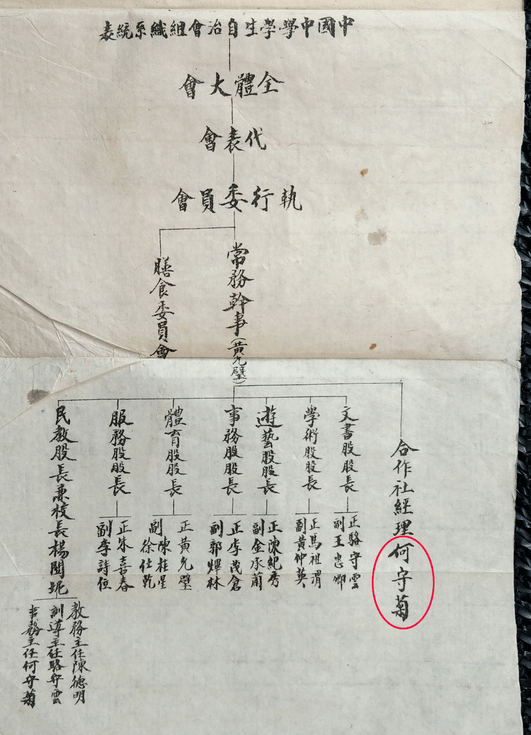 中國中學學生自治會組織系統表
全體大會
代表會
執行委員會
常務幹事(黃允璧)
膳食委員會
合作社經理何守菊
文書股股長
正駱守雲
副王忠卿
學術股股長
正馬祖渭
副黃仲英
遊藝股股長
正陳紀秀
副金承蘭
事務股股長
正李茂倉
副郭輝林
體育股股長
正黃允璧
副陳桂星
徐仕乾
服務股股長
正朱喜春
副李詩恒
民教股長兼校長楊開
教務主任陳德明
訓導主任駱守雲
事務主任何守菊